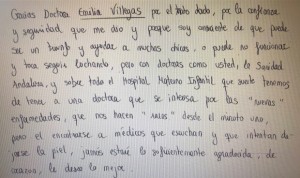 Gracias Doctora Emilia Villegas por el trato dado, por la confianza
y seguridad, que me dio y porque soy consciente de que puede
ser un triunfo y ayudar a muchos chicos, o puede no funcionar
y toca seguir luchando, pero con doctoras como usted, la Sanidad
Andaluza, y sobre todo el Hospital Materno Infantil que suerte tenemos
de tener a una doctora que se interesa por las "nuevas"
enfermedades, que nos hacen "raros" desde el minuto uno,
pero el encontrarse a médicos que escuchan y que intentan de-
jarse la piel, jamás estaré lo suficientemente agradecida, de
corazón, le deseo lo mejor.